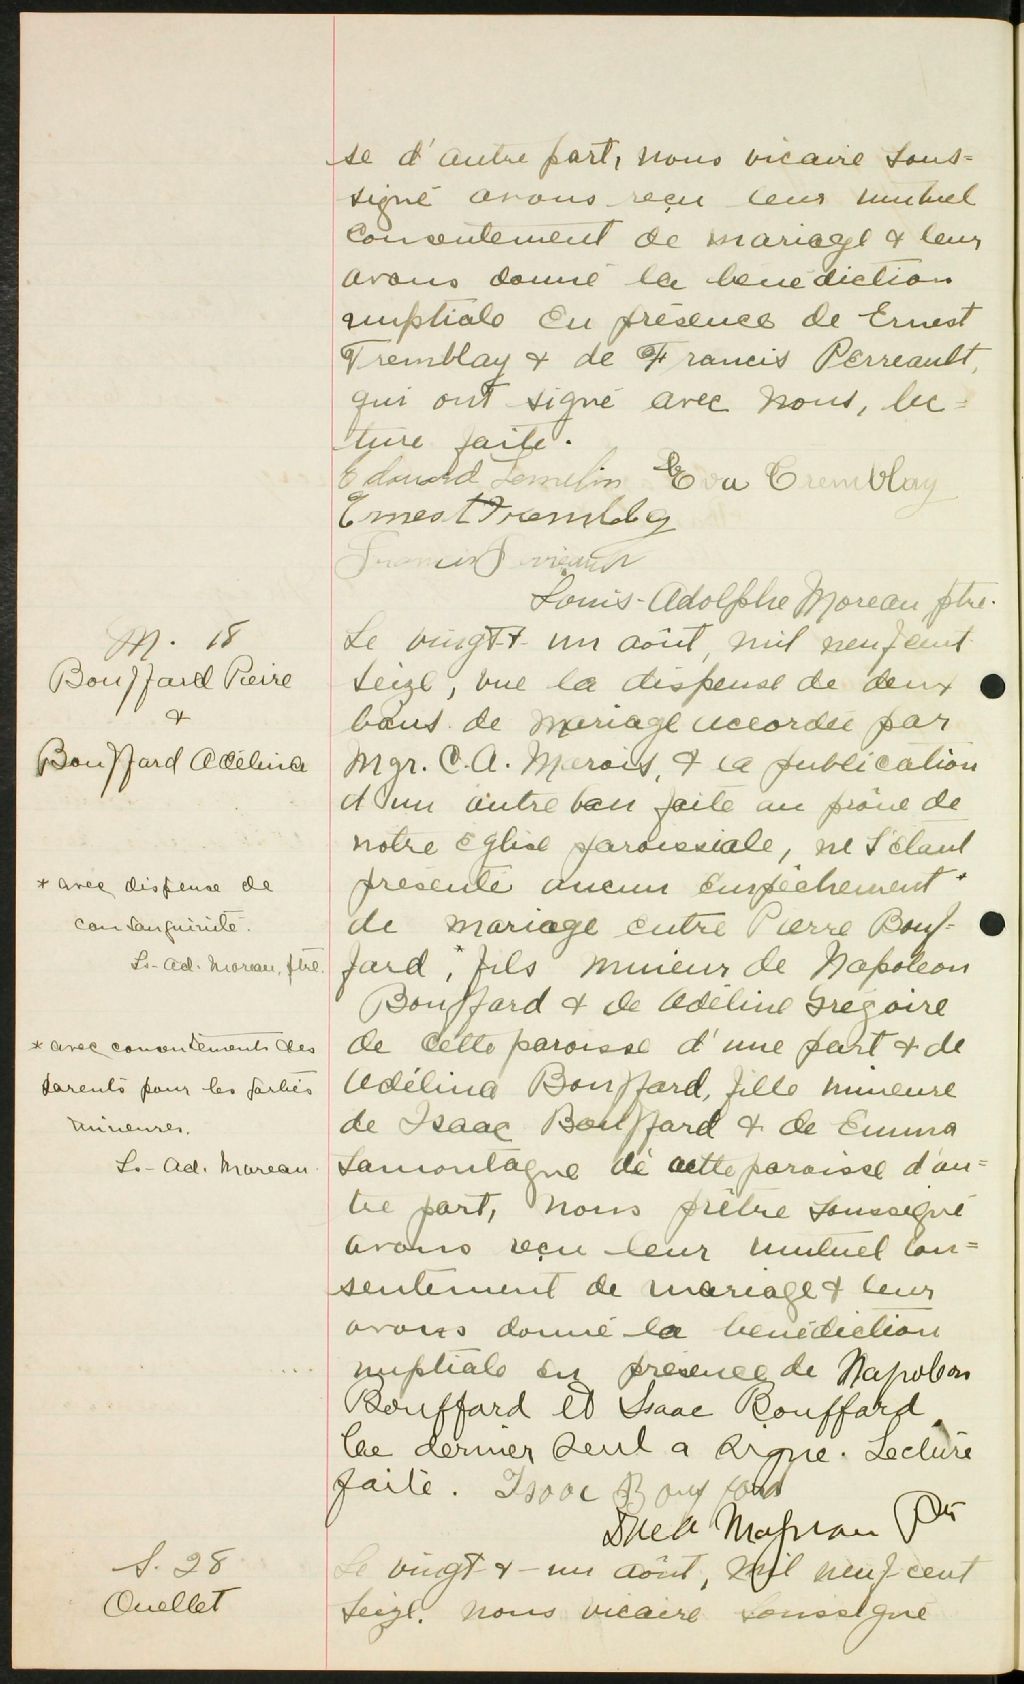 se d'autre part, nous vicaire sous=
signé avons reçu leur mutuel
consentement de mariage & leur
avons donné la bénédiction
nuptiale en présence de Ernest
Tremblay & de Francis Perreault,
qui ont signé avec nous, lec=
ture faite.
Edouard Lemelin Eva Tremblay
Ernest Tremblay
Francis Perreault
Louis-Adolphe Moreau ptre.
M. 18
Bouffard Pierre
&
Bouffard Adélina
Le vingt & un août, mil neuf cent
seize, vue la dispense de deux
bans de mariage accordée par
Mgr. C.A. Marois, & la publication
d'un autre ban faite au prône de
notre église paroissiale, ne s'étant
présenté aucun empêchement *
de mariage entre Pierre Bouf-
fard,* fils mineur de Napoléon
Bouffard & de Adéline Grégoire
de cette paroisse d'une part & de
Adélina Bouffard, fille mineure
de Isaac Bouffard & de Emma
Lamontagne de cette paroisse d'au=
tre part, nous prêtre soussigné
avons reçu leur mutuel con=
sentement de mariage & leur
avons donné la bénédiction
nuptiale en présence de Napoléon
Bouffard et Isaac Bouffard
le dernier seul a signé. Lecture
faite. Isaac Bouffard
Ptr
* avec dispense de
consanguinité.
Ls-Ad. Moreau, ptre.
* avec consentements des
parents pour les parties
mineures.
Ls-Ad. Moreau
S. 28
Ouellet
Le vingt & un août, mil neuf cent
seize, nous vicaire soussigné